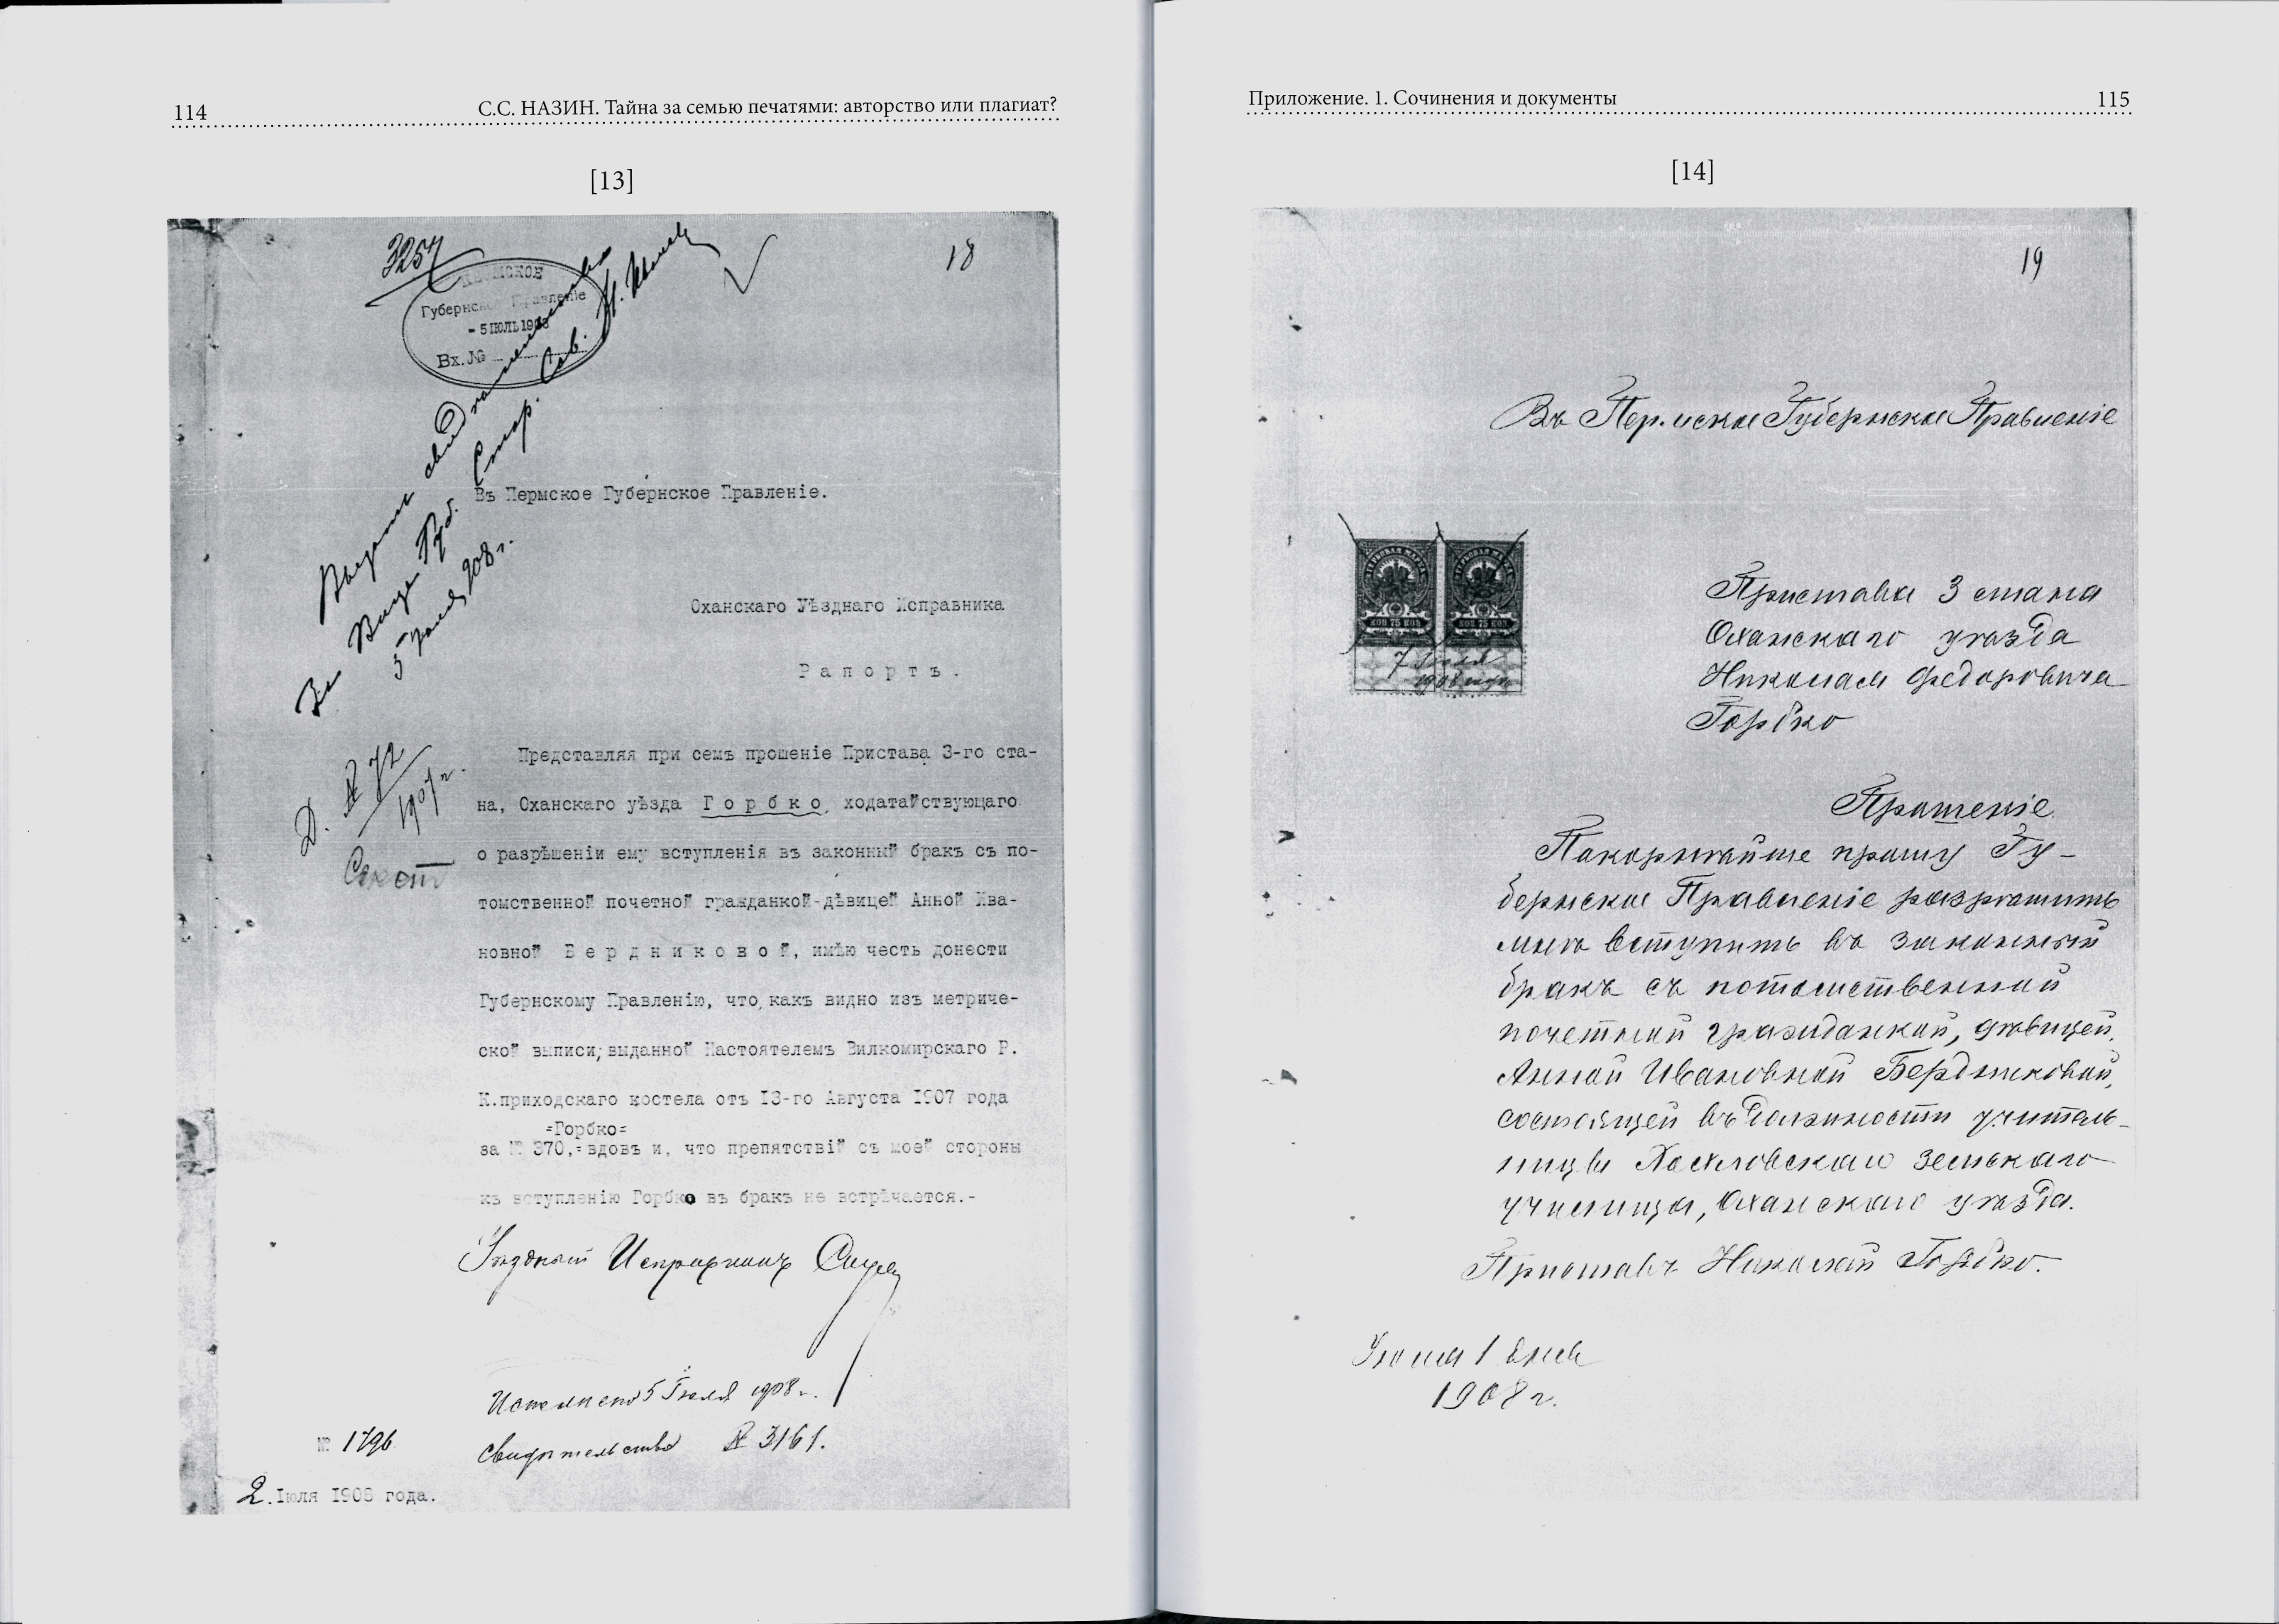 114
С.С. НАЗИН. Тайна за семью печатями: авторство или плагиат?
[13]
3257
18
ПЕРМСКОЕ
Губернское Правленіе
- 5 ІЮЛЬ 1908
Вх. №
Выдать свид
За Вице Губ. Стар. Сов.
5 Іюля 908 г.
Въ Пермское Губернское Правленіе.
Оханскаго Уѣзднаго Исправника
Рапортъ.
Д. № 72
1907 г.
Представляя при семъ прошеніе Пристава 3-го ста-
на, Оханскаго уѣзда Горбко, ходатайствующаго
о разрѣшеніи ему вступленія въ законный бракъ съ по-
томственной почетной гражданкой-дѣвицей Анной Ива-
новной Бердниковой, имѣю честь донести
Губернскому Правленію, что, какъ видно изъ метриче-
ской выписи, выданной Настоятелемъ Вилкомирскаго Р.
К. приходскаго костела отъ 13-го Августа 1907 года
=Горбко=
за № 370,- вдовъ и, что препятствій съ моей стороны
къ вступленію Горбко въ бракъ не встрѣчается.-
Уѣздный Исправникъ
Исполнено 5 Іюля 1908 г.
Свидѣтельство № 3161.
№ 1796
2. Іюля 1908 года.
Приложение. 1. Сочинения и документы
115
[14]
19
Въ Пермское Губернское Правленіе
ГЕРБОВАЯ МАРКА ГЕРБОВАЯ МАРКА
КОП 75 КОП КОП 75 КОП
7 Іюля
1908 года
Пристава 3 стана
Оханскаго уѣзда
Николая Федоровича
Горбко
Прошеніе
Покорнѣйше прошу Гу-
бернское Правленіе разрѣшить
мнѣ вступить въ законный
бракъ съ потомственной
почетной гражданкой, дѣвицей,
Анной Ивановной Бердниковой,
состоящей въ должности учитель-
ницы Хохловскаго земскаго
училища, Оханскаго уѣзда.
Приставъ Николай Горбко.
Іюля 1 дня
1908 г.